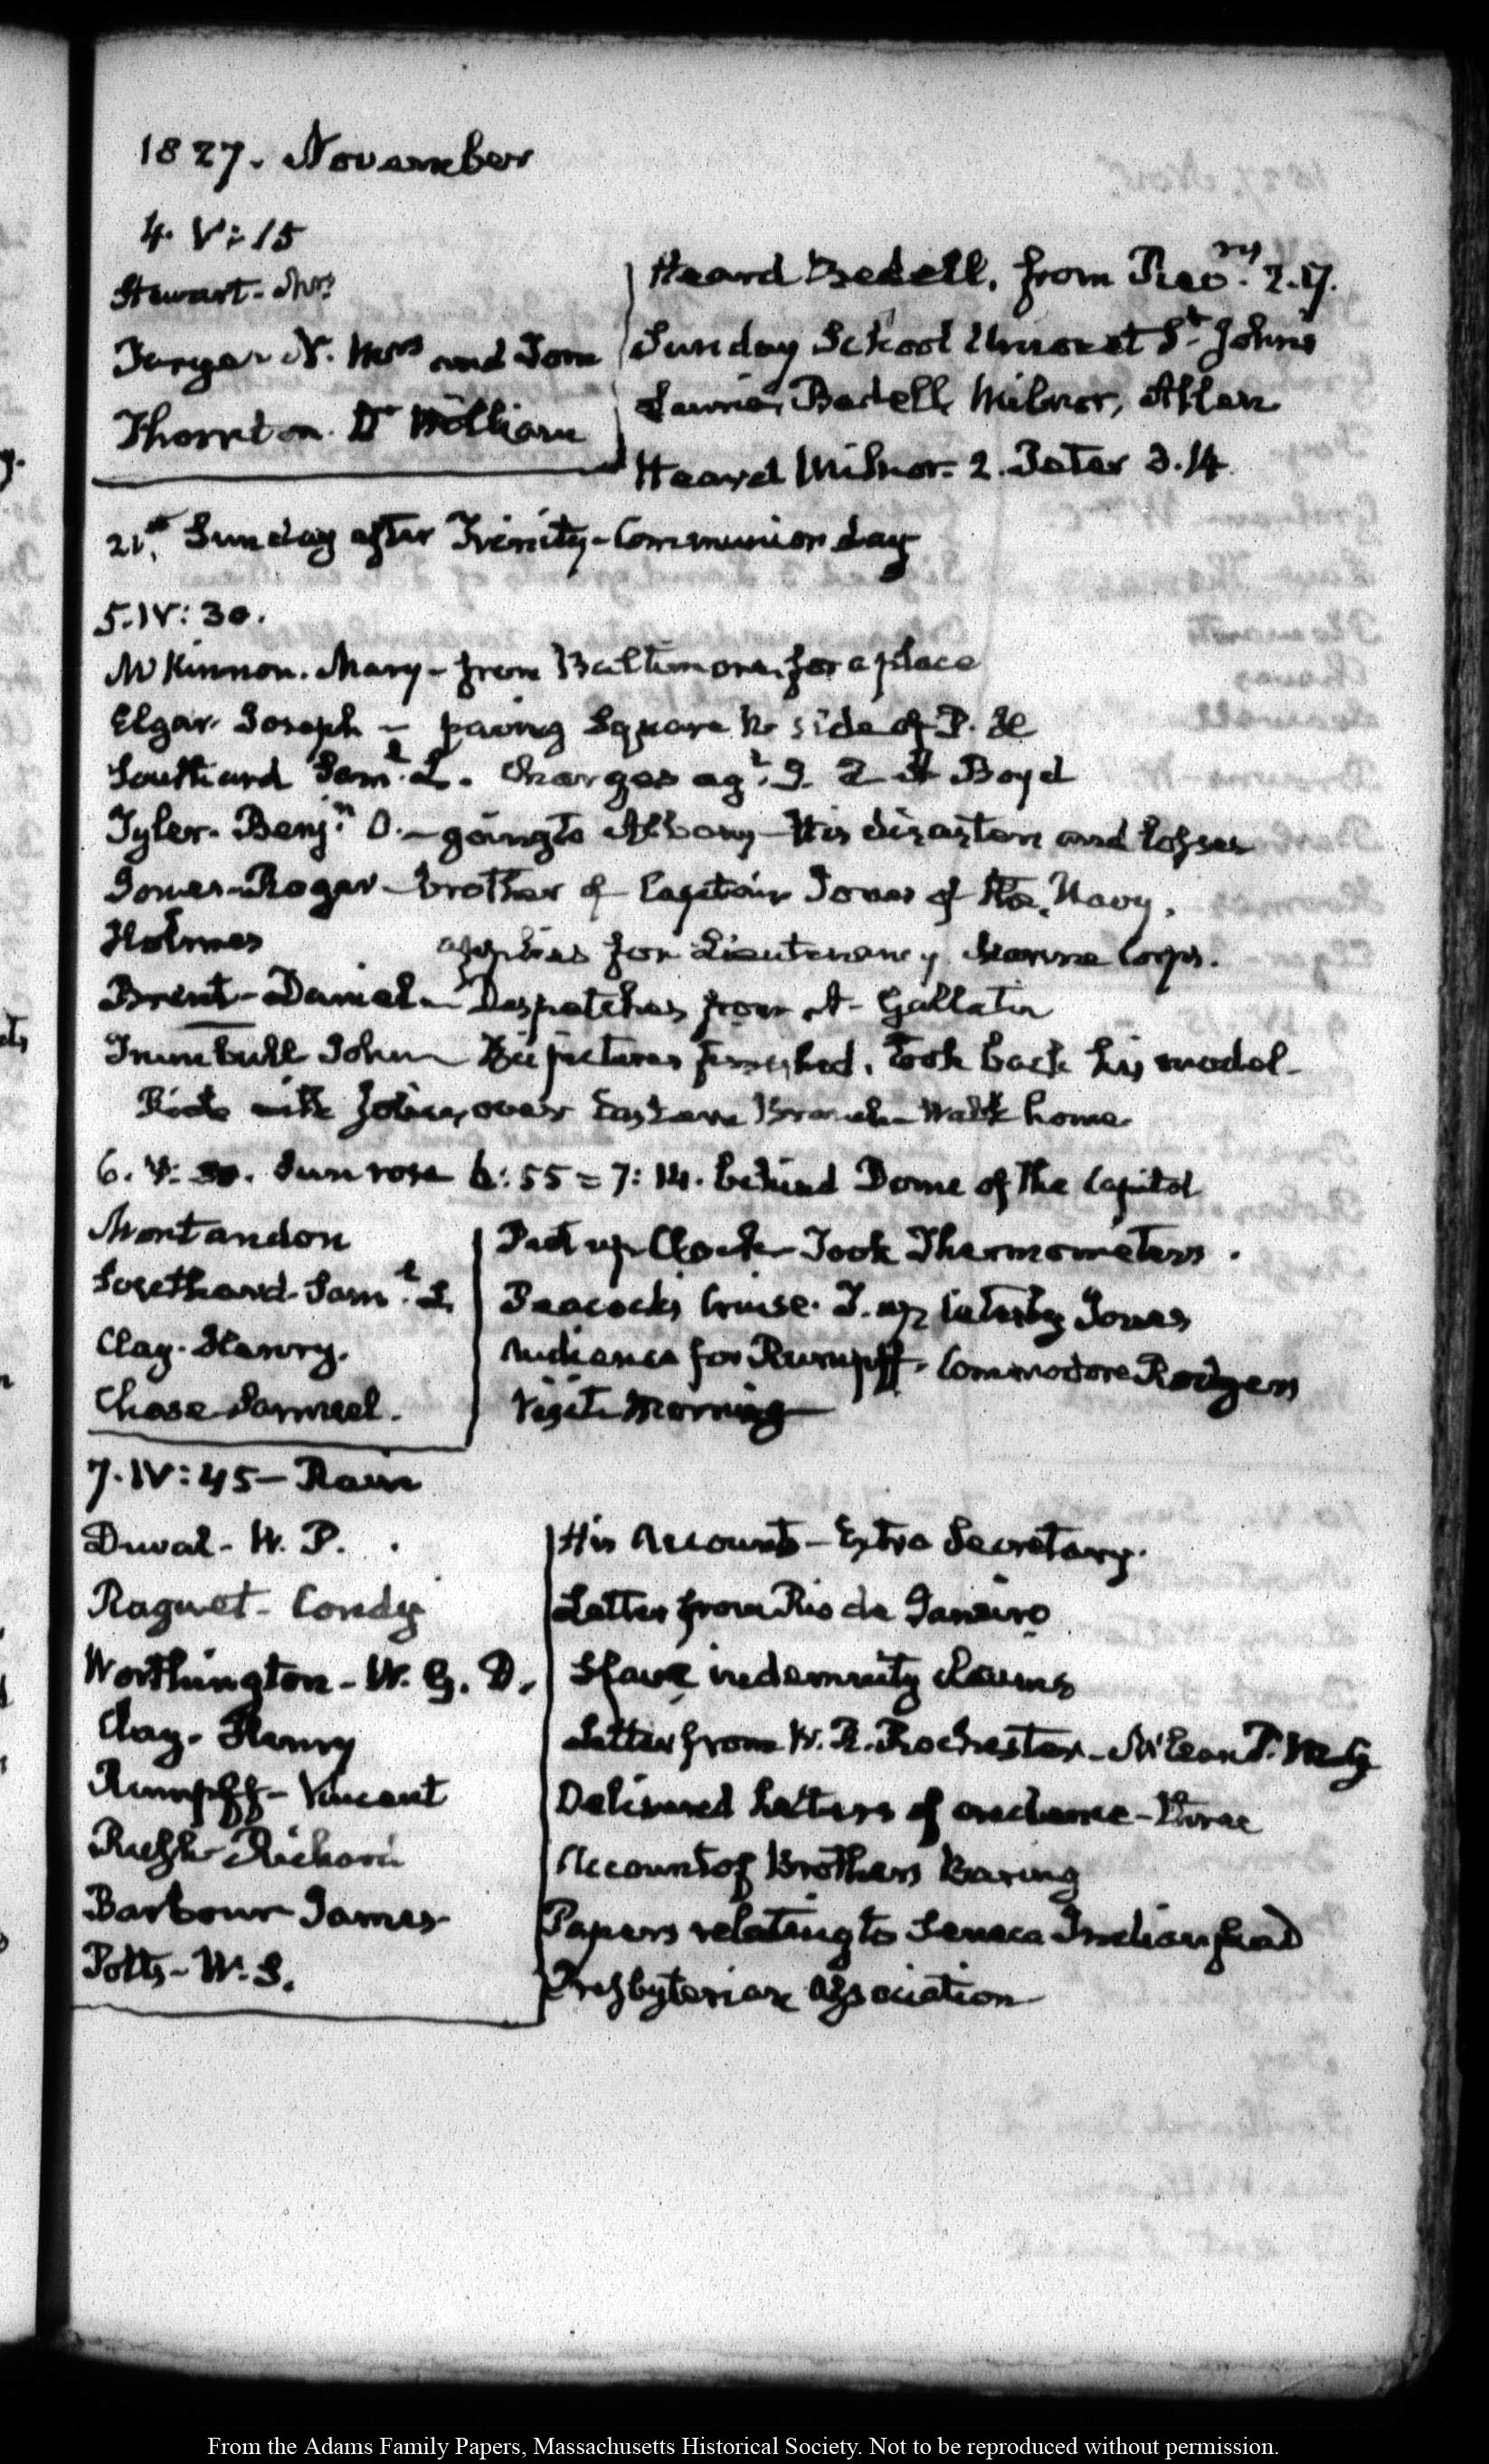 1827. November
4. V:15
Stewart. Mrs
N. Mrs and Son
Thornton. Dr William
Heard Bedell, from 2.17.
Sunday School Union at St Johns
Laurie, Bedell, Milnor, Allen
Heard Milnor. 2. Peter 3.14
21st Sunday after Trinity - Communion day
5. IV:30.
McKinnon. Mary - from Baltimore, for a place
Elgar. Joseph - paving Square N side of P. H
Southard Saml. L. Charges agt. Boyd
Tyler. Benjn. O. - going to Albany - His disasters and losses
Jones - Roger - brother of Captain Jones of the Navy.
Holmes applies for Lieutenancy Marine Corps.
Brent - Daniel - Despatches from A. Gallatin
Trumbull John pictures finished. Took back his model -
Ride with Johnson over Eastern Branch - Walk home.
6. V:30. Sun rose 6:55 = 7:14. behind Dome of the Capitol
Montandon
Southard - Saml. L.
Clay - Henry.
Chase Samuel.
Put up Clock - Took Thermometers.
Peacock's Cruise. T. ap Catesby Jones
Audience for Rumpff. Commodore Rodgers
Visit Morning
7. IV:45 - Rain
Duval - W. P.
Raguet - Condy
Worthington - W. G. D.
Clay - Henry
Rumpff - Vincent
Rush - Richard
Barbour James
Potts - W. S.
His Accounts - Extra Secretary.
Letter from Rio de Janeiro
Slave indemnity claims
Letter from W. B. Rochester -
Delivered Letters of credence - three
Account of Brothers Baring
Papers relating to Seneca Indian fund
Presbyterian association
From the Adams Family Papers, Massachusetts Historical Society. Not to be reproduced without permission.